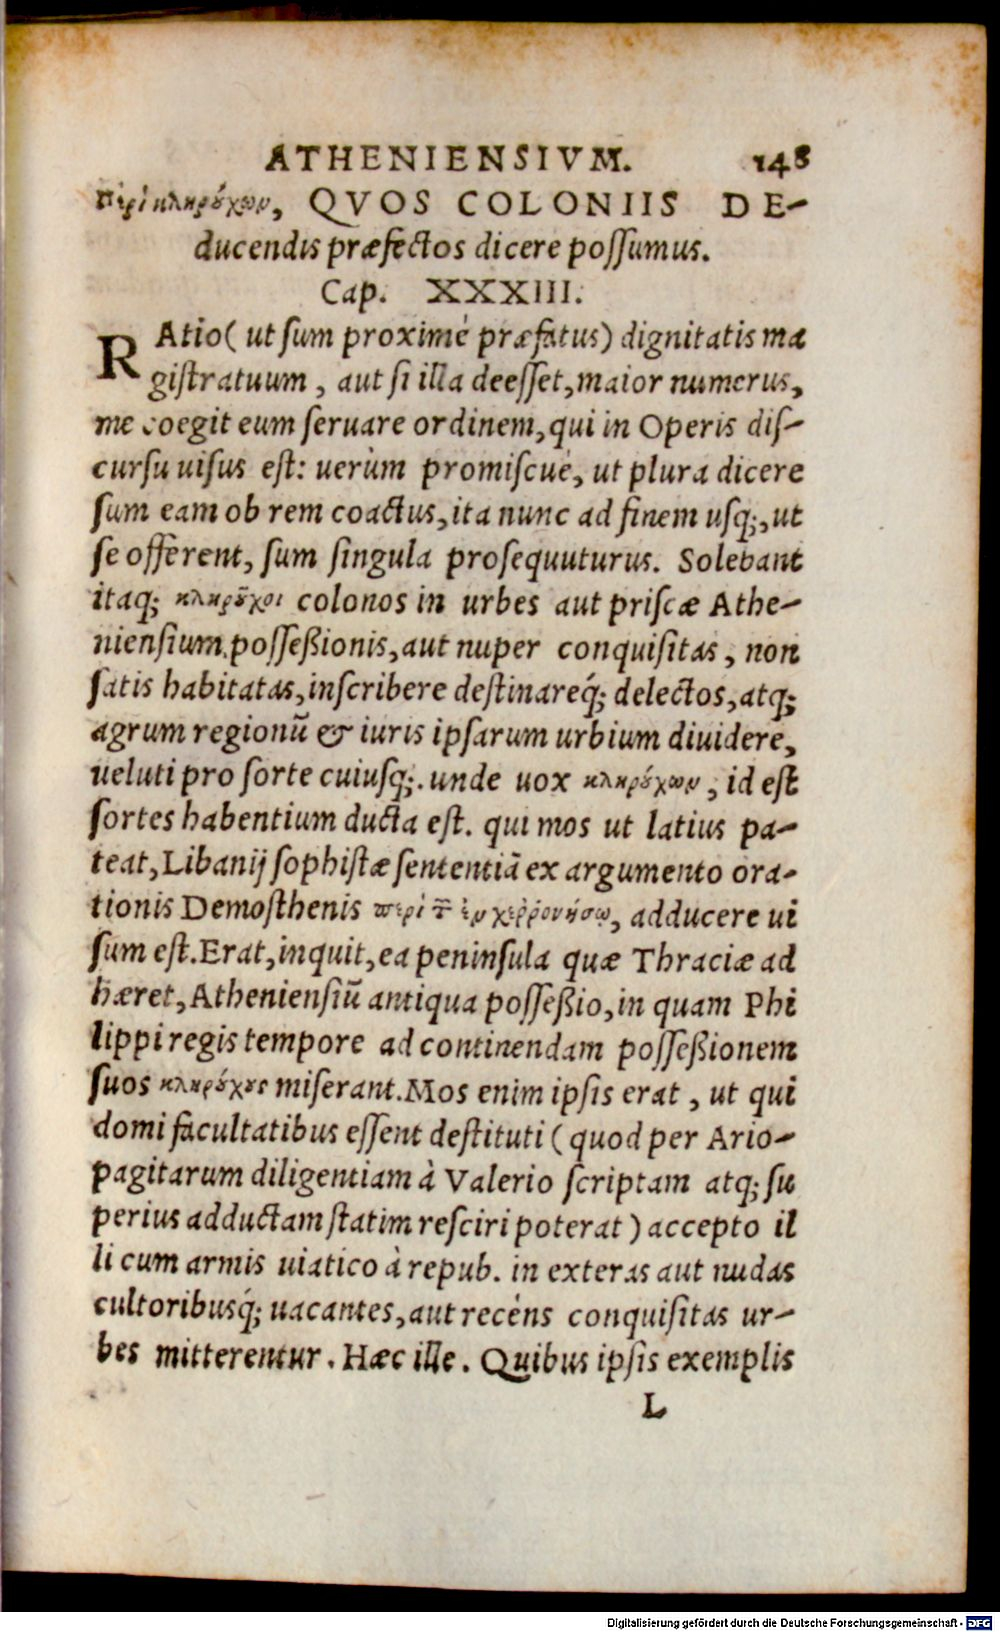 ATHENIENSIVM. 148
Περὶ κληρούχων, QVOS COLONIIS DE-
ducendis præfectos dicere poſſumus.
Cap. XXXIII.
RAtio( ut ſum proximè præfatus) dignitatis ma
giſtratuum, aut ſi illa deeſſet, maior numerus,
me coegit eum ſeruare ordinem, qui in Operis diſ-
curſu uiſus eſt: uerùm promiſcuè, ut plura dicere
ſum eam ob rem coactus, ita nunc ad finem uſq;, ut
ſe offerent, ſum ſingula proſequuturus. Solebant
itaq; κληροῦχοι colonos in urbes aut priſcæ Athe-
nienſium poſſeßionis, aut nuper conquiſitas, non
ſatis habitatas, inſcribere deſtinareq́; delectos, atq;
agrum regionū & iuris ipſarum urbium diuidere,
ueluti pro ſorte cuiuſq;. unde uox κληρούχων, id eſt
ſortes habentium ducta eſt. qui mos ut latius pa-
teat, Libanij ſophiſtæ ſententiā ex argumento ora-
tionis Demoſthenis περὶ τ̄ ἐν χεῤῥονήσῳ, adducere ui
ſum eſt. Erat, inquit, ea peninſula quæ Thraciæ ad
hæret, Athenienſiū antiqua poſſeßio, in quam Phi
lippi regis tempore ad continendam poſſeßionem
ſuos κληρούχους miſerant. Mos enim ipſis erat, ut qui
domi facultatibus eſſent deſtituti ( quod per Ario-
pagitarum diligentiam à Valerio ſcriptam atq; ſu
perius adductam ſtatim reſciri poterat ) accepto il
li cum armis uiatico à repub. in exteras aut nudas
cultoribusq́; uacantes, aut recèns conquiſitas ur-
bes mitterentur. Hæc ille. Quibus ipſis exemplis
L
Digitalisierung gefördert durch die Deutsche Forschungsgemeinschaft - DFG